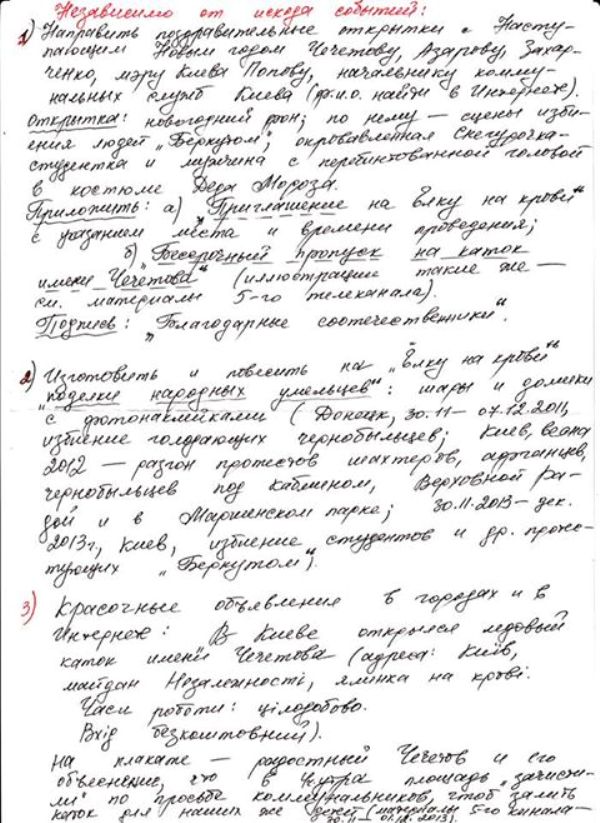 Независимо от исхода событий:
1) Направить поздравительные открытки с Насту-
пающим Новым годом Чечетову, Азарову, Захар-
ченко, мэру Киева Попову, начальнику комму-
нальных служб Киева (ф.и.о. найти в Интернете).
Открытка: новогодний фон; по нему — сцены изби-
ения людей „Беркутом", окровавленная Снегурочка-
студентка и мужчина с перебинтованной головой
в костюме Деда Мороза.
Приложить: а) „Приглашение на Ёлку на крови"
с указанием места и времени проведения;
б) „Бессрочный пропуск на каток
имени Чечетова" (иллюстрации такие же —
см. материалы 5-го телеканала).
Подпись: „Благодарные соотечественники".
2) Изготовить и повесить на „Ёлку на крови"
„поделки народных умельцев": шары и домики
с фотонаклейками (Донецк, 30.11 – 07.12.2011,
избиение голодающих чернобыльцев; Киев, весна
2012 — разгон протестов шахтёров, афганцев,
чернобыльцев под Кабмином, Верховной Ра-
дой и в Мариинском парке; 30.11.2013 – дек.
2013г, Киев, избиение студентов и др. протес-
тующих „Беркутом").
3) Красочные объявления в городах и в
Интернете: В Киеве открылся ледовый
каток имени Чечетова (адреса: Київ,
майдан Незалежності, ялинка на крові.
Часи роботи: цілодобово.
Вхід безкоштовний).
На плакате — радостный Чечетов и его
объяснение, что в 4 утра площадь „зачисти-
ли" по просьбе коммунальников, чтоб залить
каток для наших же детей (материалы 5-го канала–
30.11 – 01.12.2013).